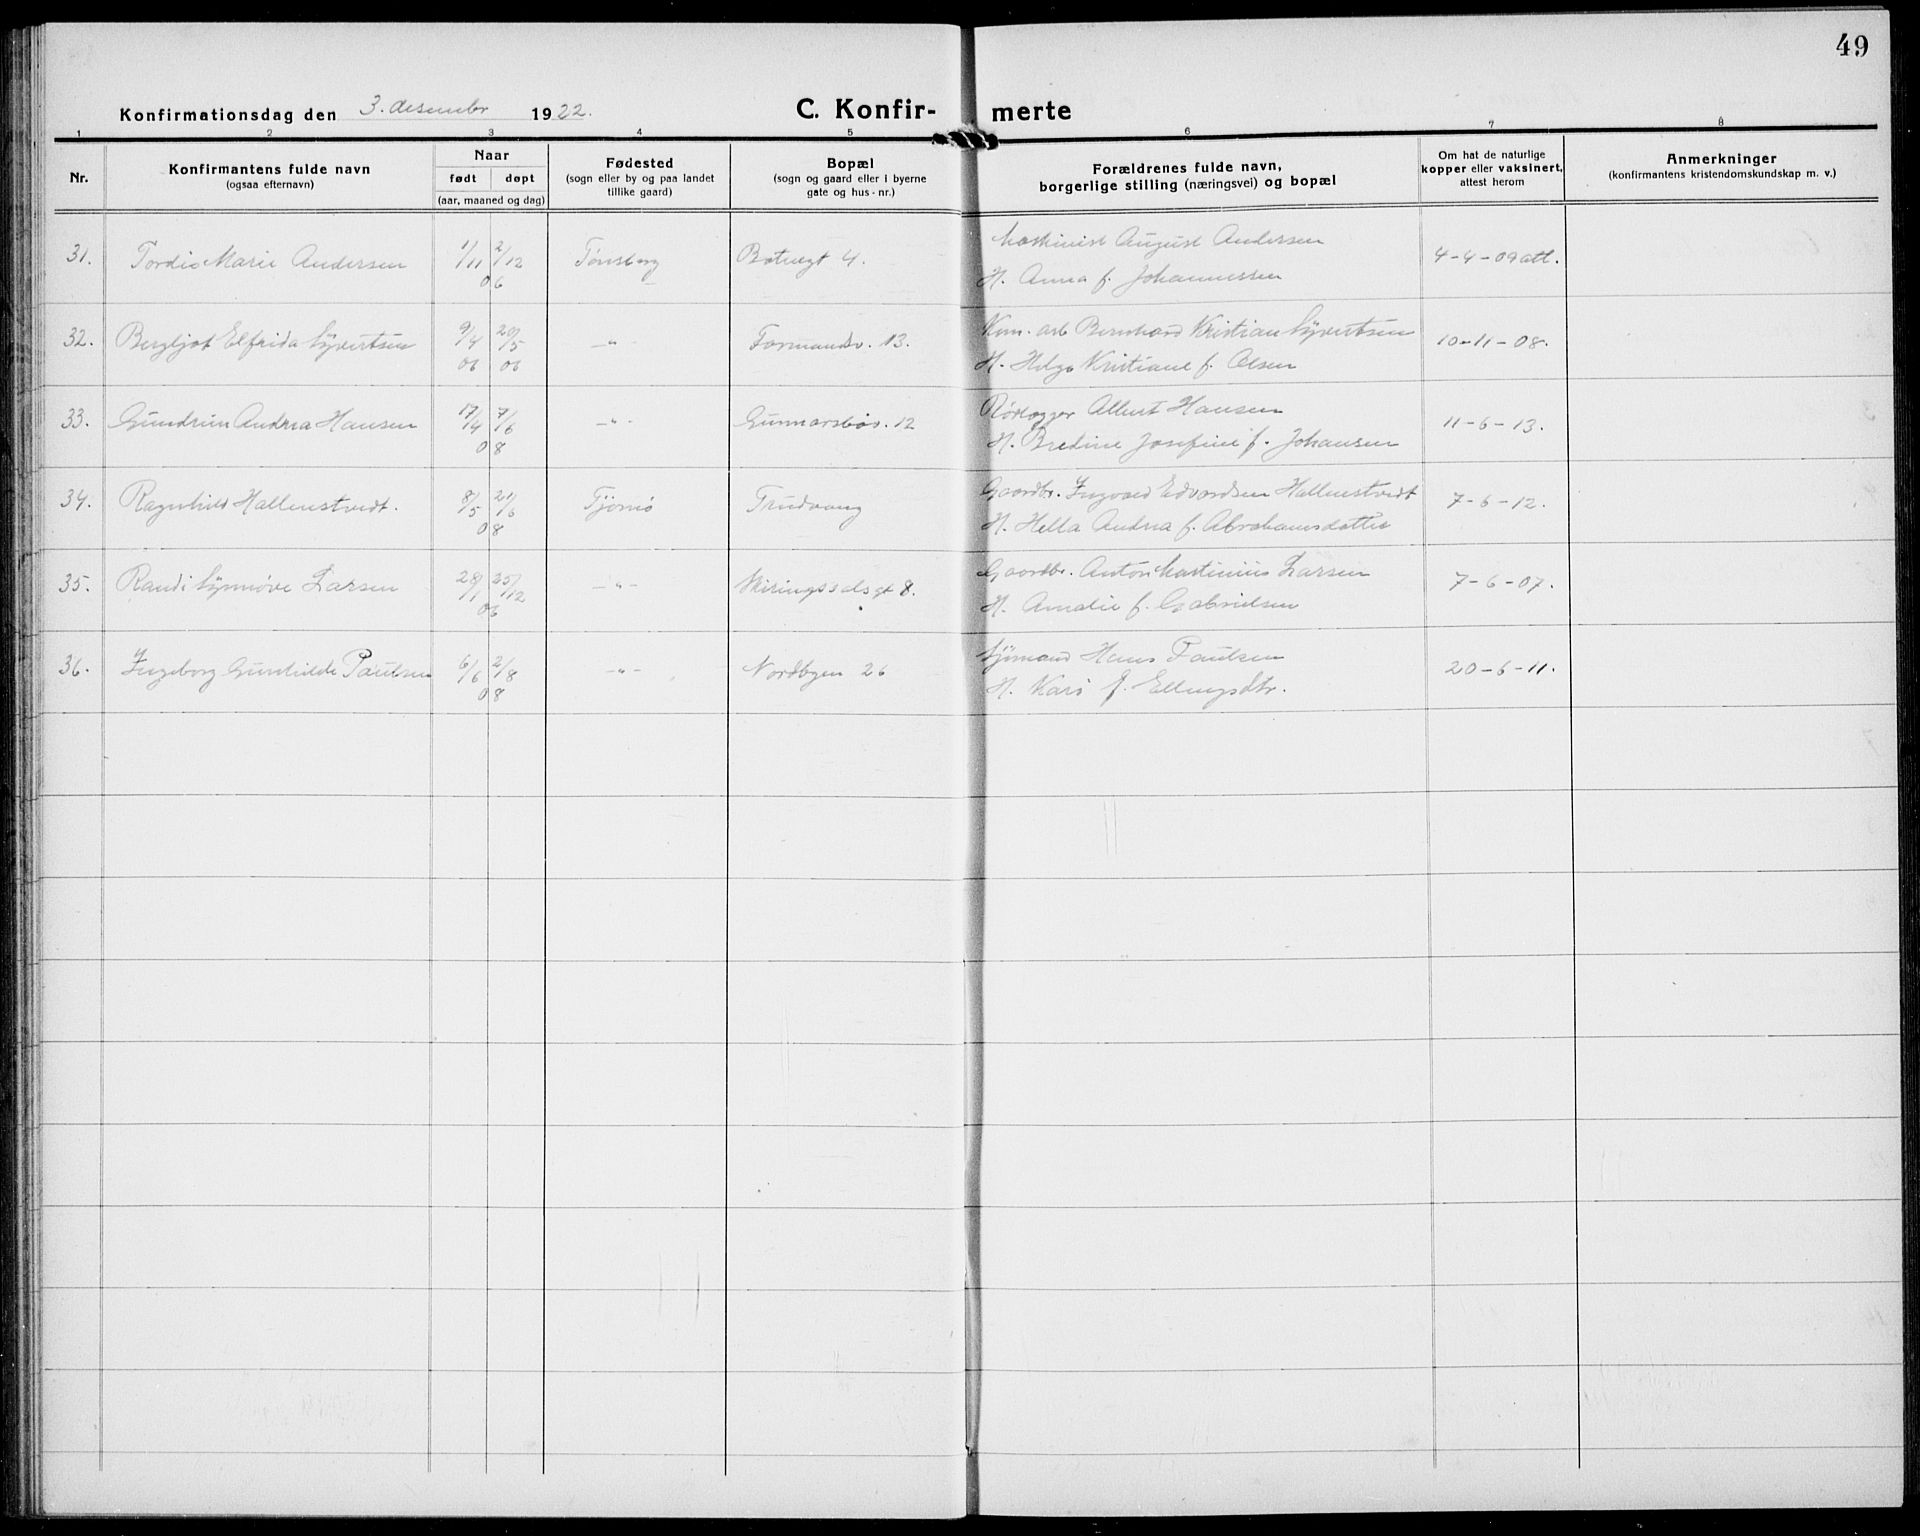 49
Konfirmationsdag den 3. desember 1922.
C. Konfir-merte
1 2 3 4 5 6 7 8
Nr.
Konfirmantens fulde navn
(ogsaa efternavn)
Naar
født døpt
(aar, maaned og dag)
Fødested
(sogn eller by og paa landet
tillike gaard)
Bopæl
(sogn og gaard eller i byerne
gate og hus-nr.)
Forældrenes fulde navn,
borgerlige stilling (næringsvei) og bopæl
Om hat de naturlige
kopper eller vaksinert,
attest herom
Anmerkninger
(konfirmantens kristendomskundskap m. v.)
Maskinist August Andersen
31. Tordis Marie Andersen 1/11 2/12 06 Tønsberg 4. 4-4-09 att.
H. Anna f. Johannessen
Bernhard Kristian Syvertsen
32. Bergljot Elfrida Syvertsen 9/4 20/5 06 06 -"- Formandsv. 13. 10-11-08.
H. Helga Kristiane f. Olsen
Rørlægger Albert Hansen
33. Andrea Hansen 17/4 7/6 08 -"- Gunnarsbøv. 12 11-6-13.
H. Bredine Josefine f. Johansen
Gaardbr. Ingvald Edvardsen Hallenstvedt
34. Ragnhild Hallenstvedt. 8/5 21/6 08 Tjømø Trudvang 7-6-12.
H. Hella Andrea f. Abrahamsdatter
Gaardbr. Anton Martinius Larsen
35. Randi Synnøve Larsen 28/1 25/12 06 -"- Skiringssalsgt 8. 7-6-07.
H. Amalie f. Gabrielsen
Sjømand Hans Paulsen
36. Ingeborg Gunhilde Paulsen 6/6 2/8 08 -"- Nordbyen 26 20-6-11.
H. Kari f. Ellingsdtr.